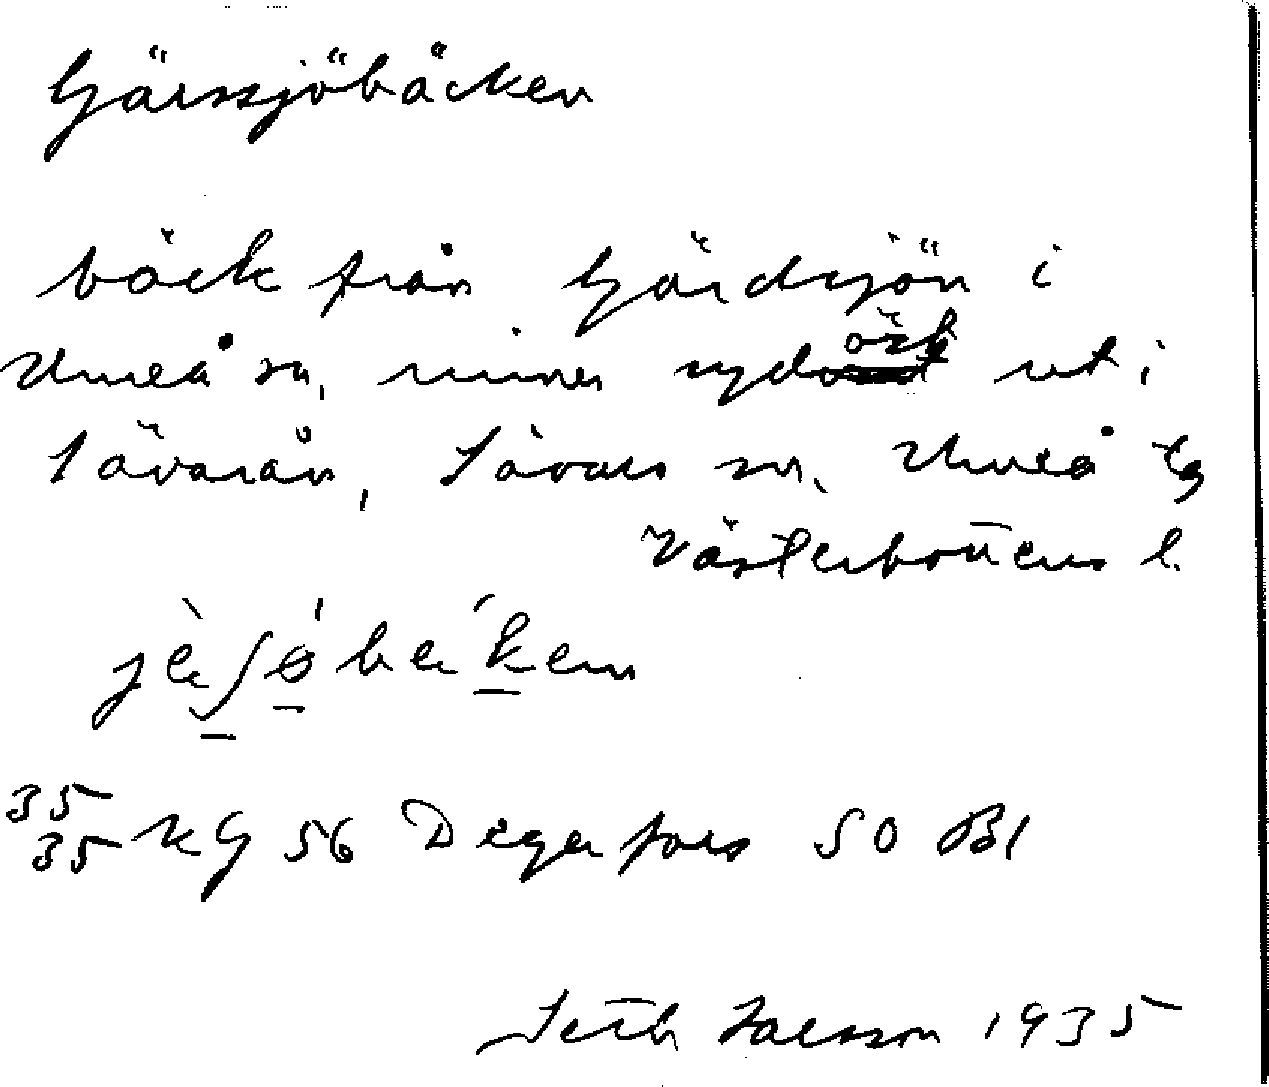 Gärssjöbäcken
bäck från Gärdsjön i
Umeå sn, rinner sydöst ut i
Sävarån, Sävars sn, Umeå tg
Västerbottens l.
35
35 KG 56 Degerfors SO Bl
Seth Larsson 1935